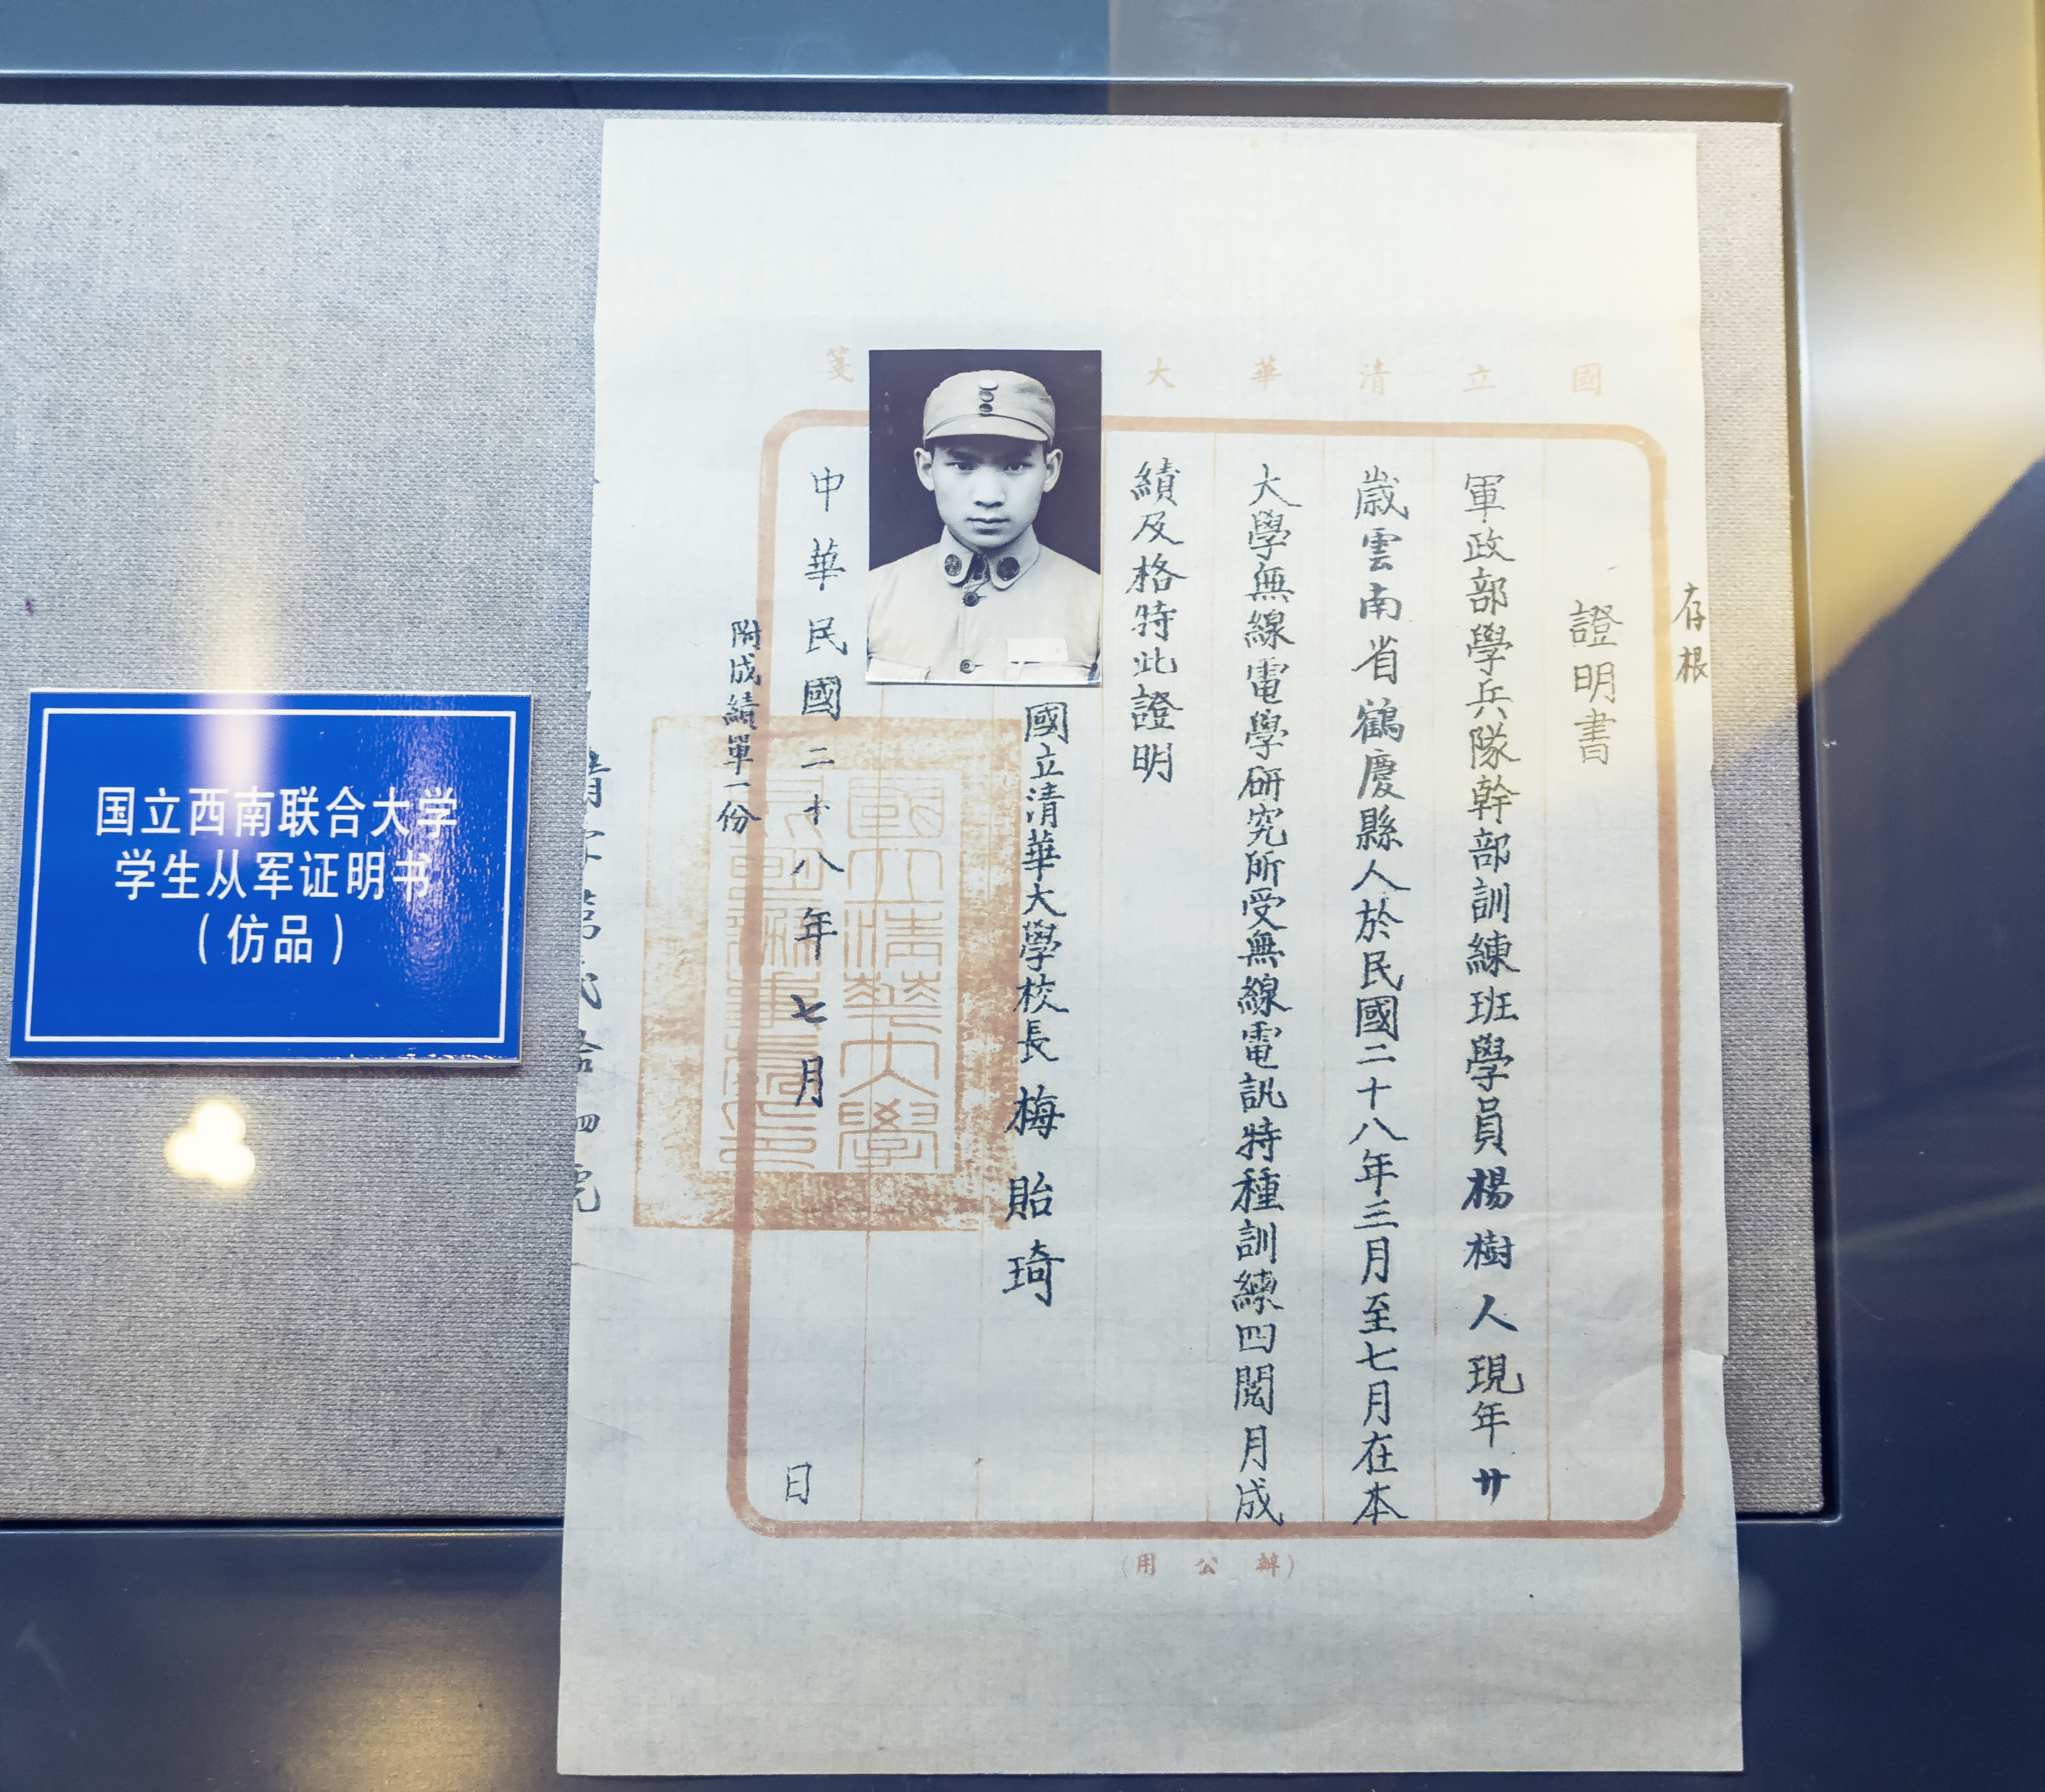 国立西南联合大学
学生从军证明书
（仿品）
國立清華大箋
存根
證明書
軍政部學兵隊幹部訓練班學員楊樹人現年廿
歲雲南省鶴慶縣人於民國二十八年三月至七月在本
大學無線電學研究所受無線電訊特種訓練四閱月成
績及格特此證明
國立清華大學校長梅貽琦
中華民國二十八年七月日
附成績單一份
（辦公用）